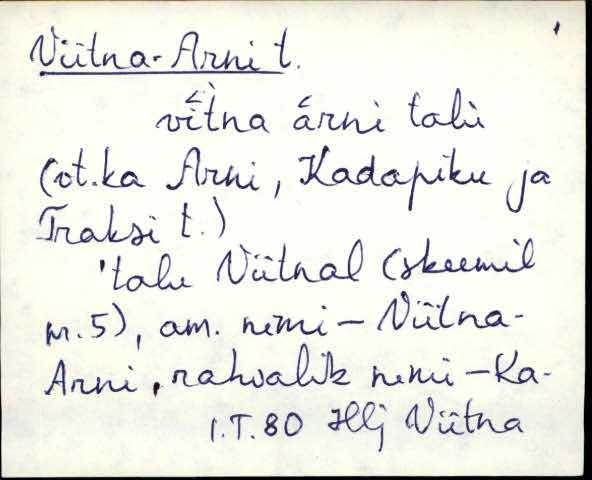 Viitna-Arni t.
vītna ärni talu
(vt.ka Arni, Kadapiku ja
Traksi t.)
'talu Viitnal (skeemil
nr.5), am. nimi – Viitna-
Arni, rahvalik nimi – Ka-
I.T.80 Hlj Viitna